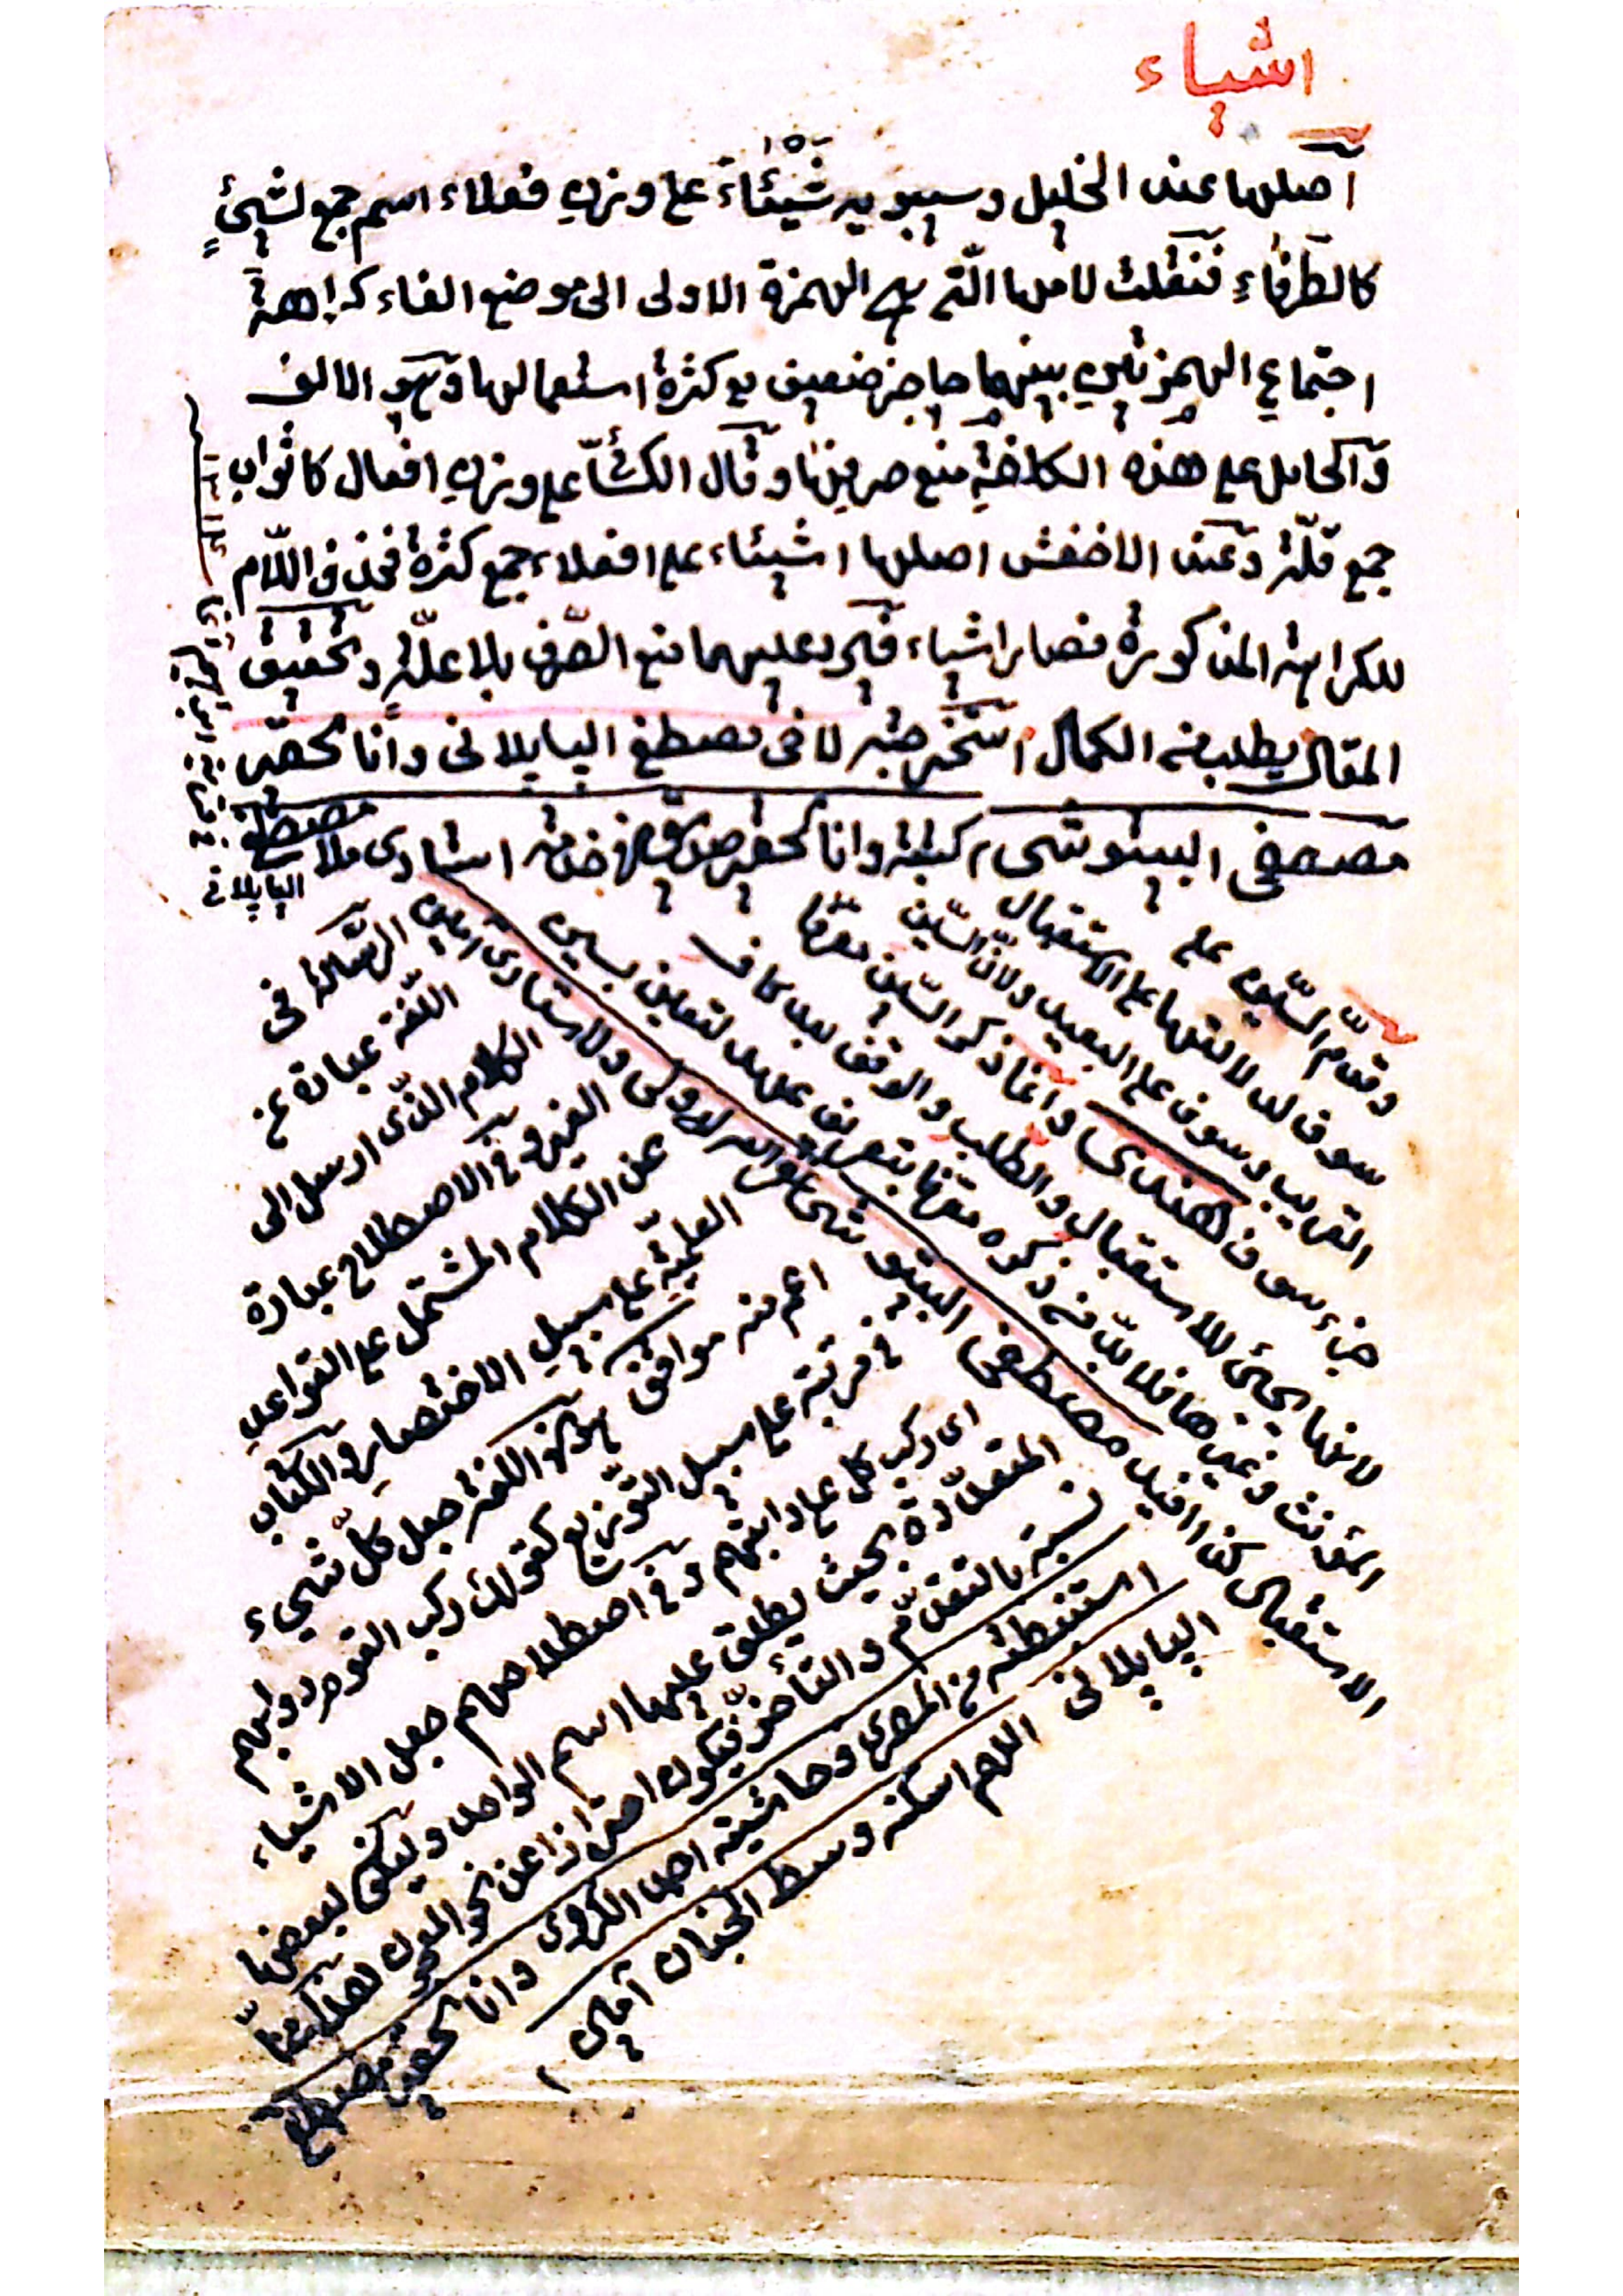 اشياء
اصلها عند الخليل وسيبويه شَيْئَاءَ على وزن فعلاء اسم جمع لشيئٍ
كالطَرفاءِ فنقلت لامها الّتى هى الهمزة الاولى الى موضع الفاء كراهة
اجتماع الهمزتين بينهما حاجز ضعيف مع كثرة استعمالها وهو الالف
والحامل على هذه الكلفةِ منع صرفها وقال الكسائى على وزن افعال كاثواب
جمع قلّة وعند الاخفش اصلها اشيئاء على افعلاء جمع كثرة فحذف اللّام
للكراهة المذكورة فصار اشياء فيرد عليهما منع الصّرف بلا علّةٍ وتحقيق
المقال يطلب منه الكمال استخرجته لاخى مصطفى البايلانى وانا لحقير
مصطفى البيتوشى كتبته وانا لحقير استادى ملا مصطفى
البايلانى
وقدّم السّين على
سوف لدلالتها على الاستقبال
القريب وسوف على البعيد ولانّ السّين
جزء سوف هندى وانما ذكر السّين معرّفا
لانها يجئ للاستقبال والطلب والوقف بعد كاف
المؤنث وغيرها فلا بدّ من ذكره معرفا بتعريف عهد لتعين سين
الاستقبال كذا افيد مصطفى البيتوشى
الرّسالة فى
اللّغة عبارة عن
الكلام الذّى ارسل الى
الغير وفى الاصطلاح عبارة
عن الكلام المشتمل على القواعد
العلميّة على سبيل الاختصار والكتاب
اعم منه موافق لهذه اللغة جعل كلّ شيء
فى مرتبته على سبيل التّوزيع كقولك ركب القوم دوابهم
اى ركب كل على دابتهم وفى اصطلاحهم جعل الاشياء
المتعدّدة بحيث يطلق عليها اسم الواحد ويكون لبعضها
نسبة بالتقدّم والتأخّر فيكون احترازا عن نحو
استنبطته من وحاشيته وانا لحقير مصطفى
البايلانى اللهم اسكنه وسط الجنان آمين